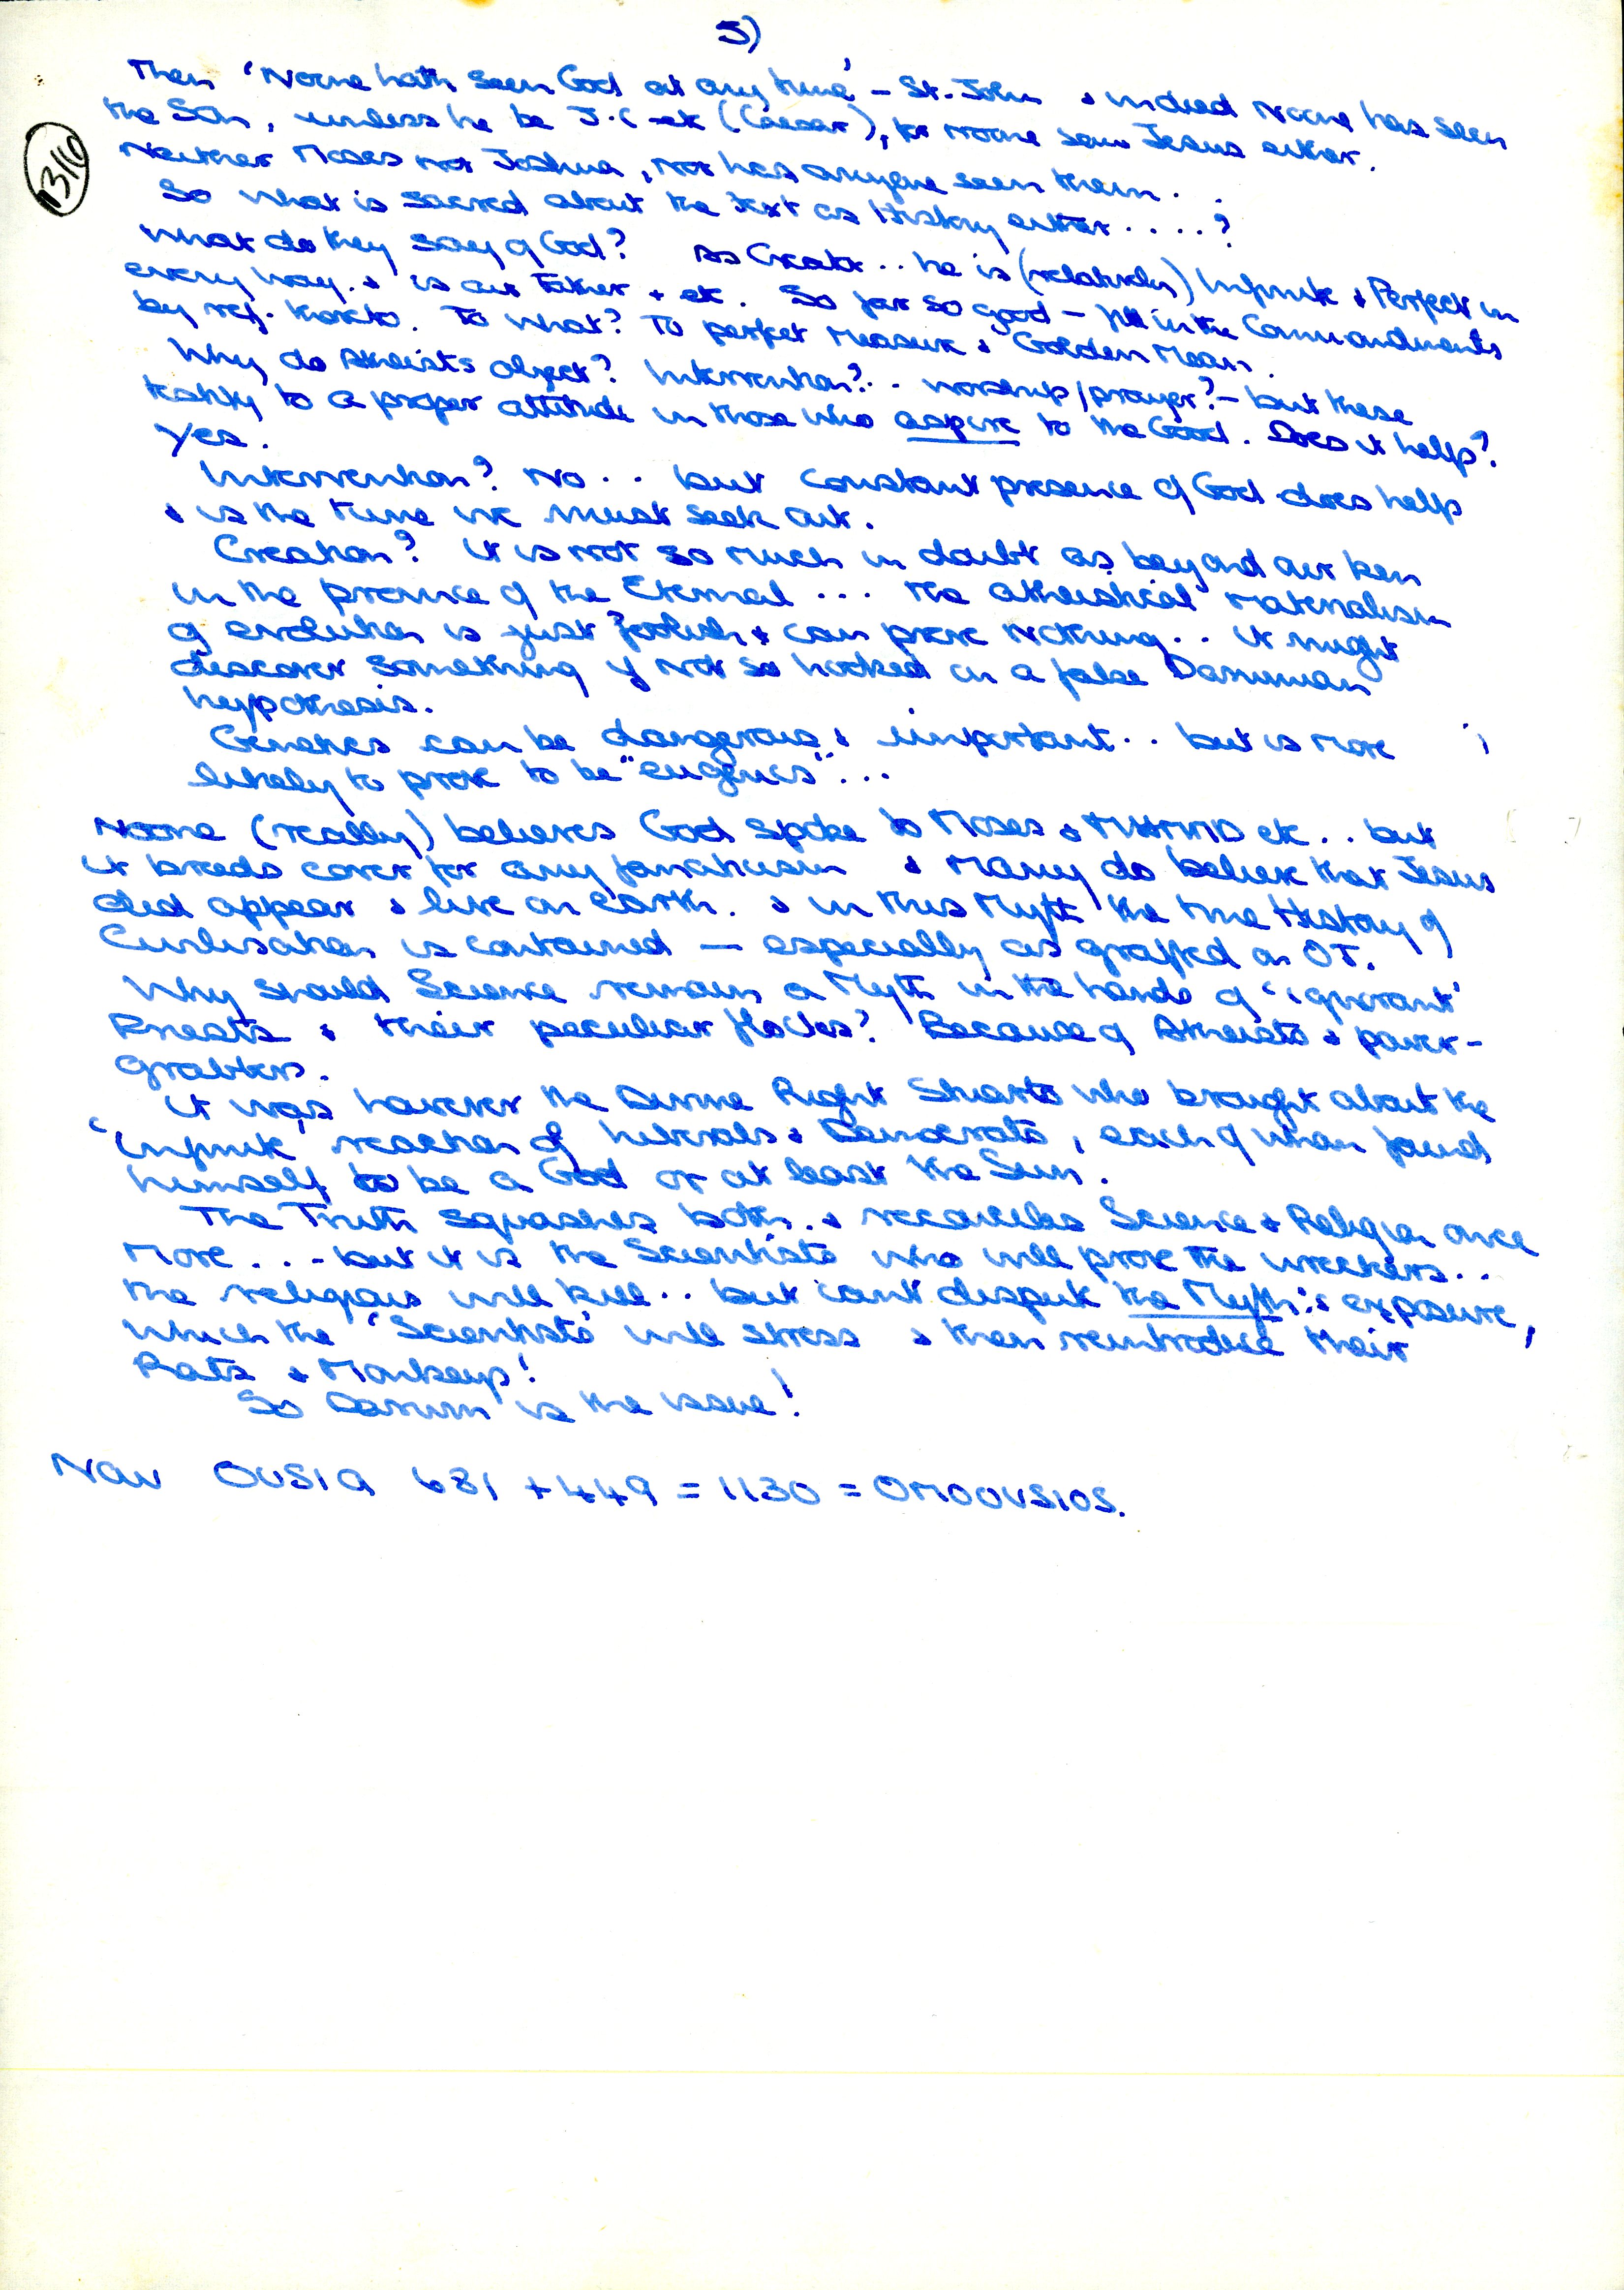 5)
Then 'Noone hath seen God at any time' – St. John & indeed Noone has seen
the Son, unless he be J.C etc (Caesar), for noone saw Jesus either.
13/10
Neither Moses nor Joshua, nor has anyone seen them..
So what is sacred about the text as History either ....?
What do they say of God? As Creator .. he is (relatively) Infinite & Perfect in
every way. & is our Father + etc. So far so good – fill in the Commandments
by ref. thereto. To what? To perfect Measure & Golden Mean.
Why do Atheists object? Intervention? .. worship/prayer? – but these
testify to a proper attitude in those who aspire to the Good. Does it help?
Yes.
Intervention? No .. but constant presence of God does help
& is the tune we must seek out.
Creation? It is not so much in doubt as beyond our ken
in the province of the Eternal ... the atheistical materialism
of evolution is just foolish & can prove nothing .. it might
discover something if not so hooked on a false Darwinian
hypothesis.
Genetics can be dangerous & important .. but is more
likely to prove to be "eugenics" ...
Noone (really) believes God spoke to Moses & etc .. but
it breeds cover for any fanaticism & Many do believe that Jesus
did appear & live on earth. & in this Myth the true History of
Civilisation is contained — especially as grafted on OT.
Why should Science remain a Myth in the hands of 'ignorant'
Priests & their peculiar flocks? Because of Atheists & power-
Grabbers.
It was however the Divine Right Stuarts who brought about the
'infinite' reaction of Liberals & Democrats, each of whom found
himself to be a God or at least the Sun.
The Truth squashes both. & reconciles Science & Religion once
More ... – but it is the Scientists who will prove the wreckers ..
the religious will kill .. but can't dispute the Myth's exposure,
which the 'Scientists' will stress & then reintroduce their
Rats & Monkeys!
So Darwin is the issue!
Now OUSIA 681 + 449 = 1130 = OMOOUSIOS.